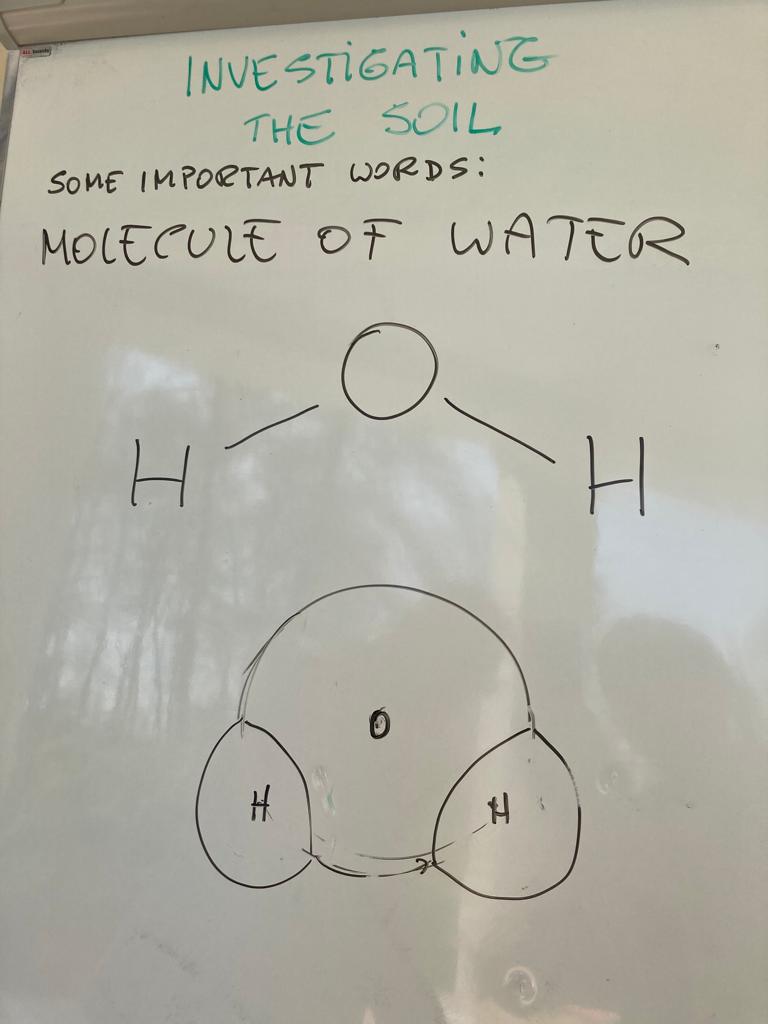 INVESTIGATING
THE SOIL
SOME IMPORTANT WORDS:
MOLECULE OF WATER
O
H H
O
H H